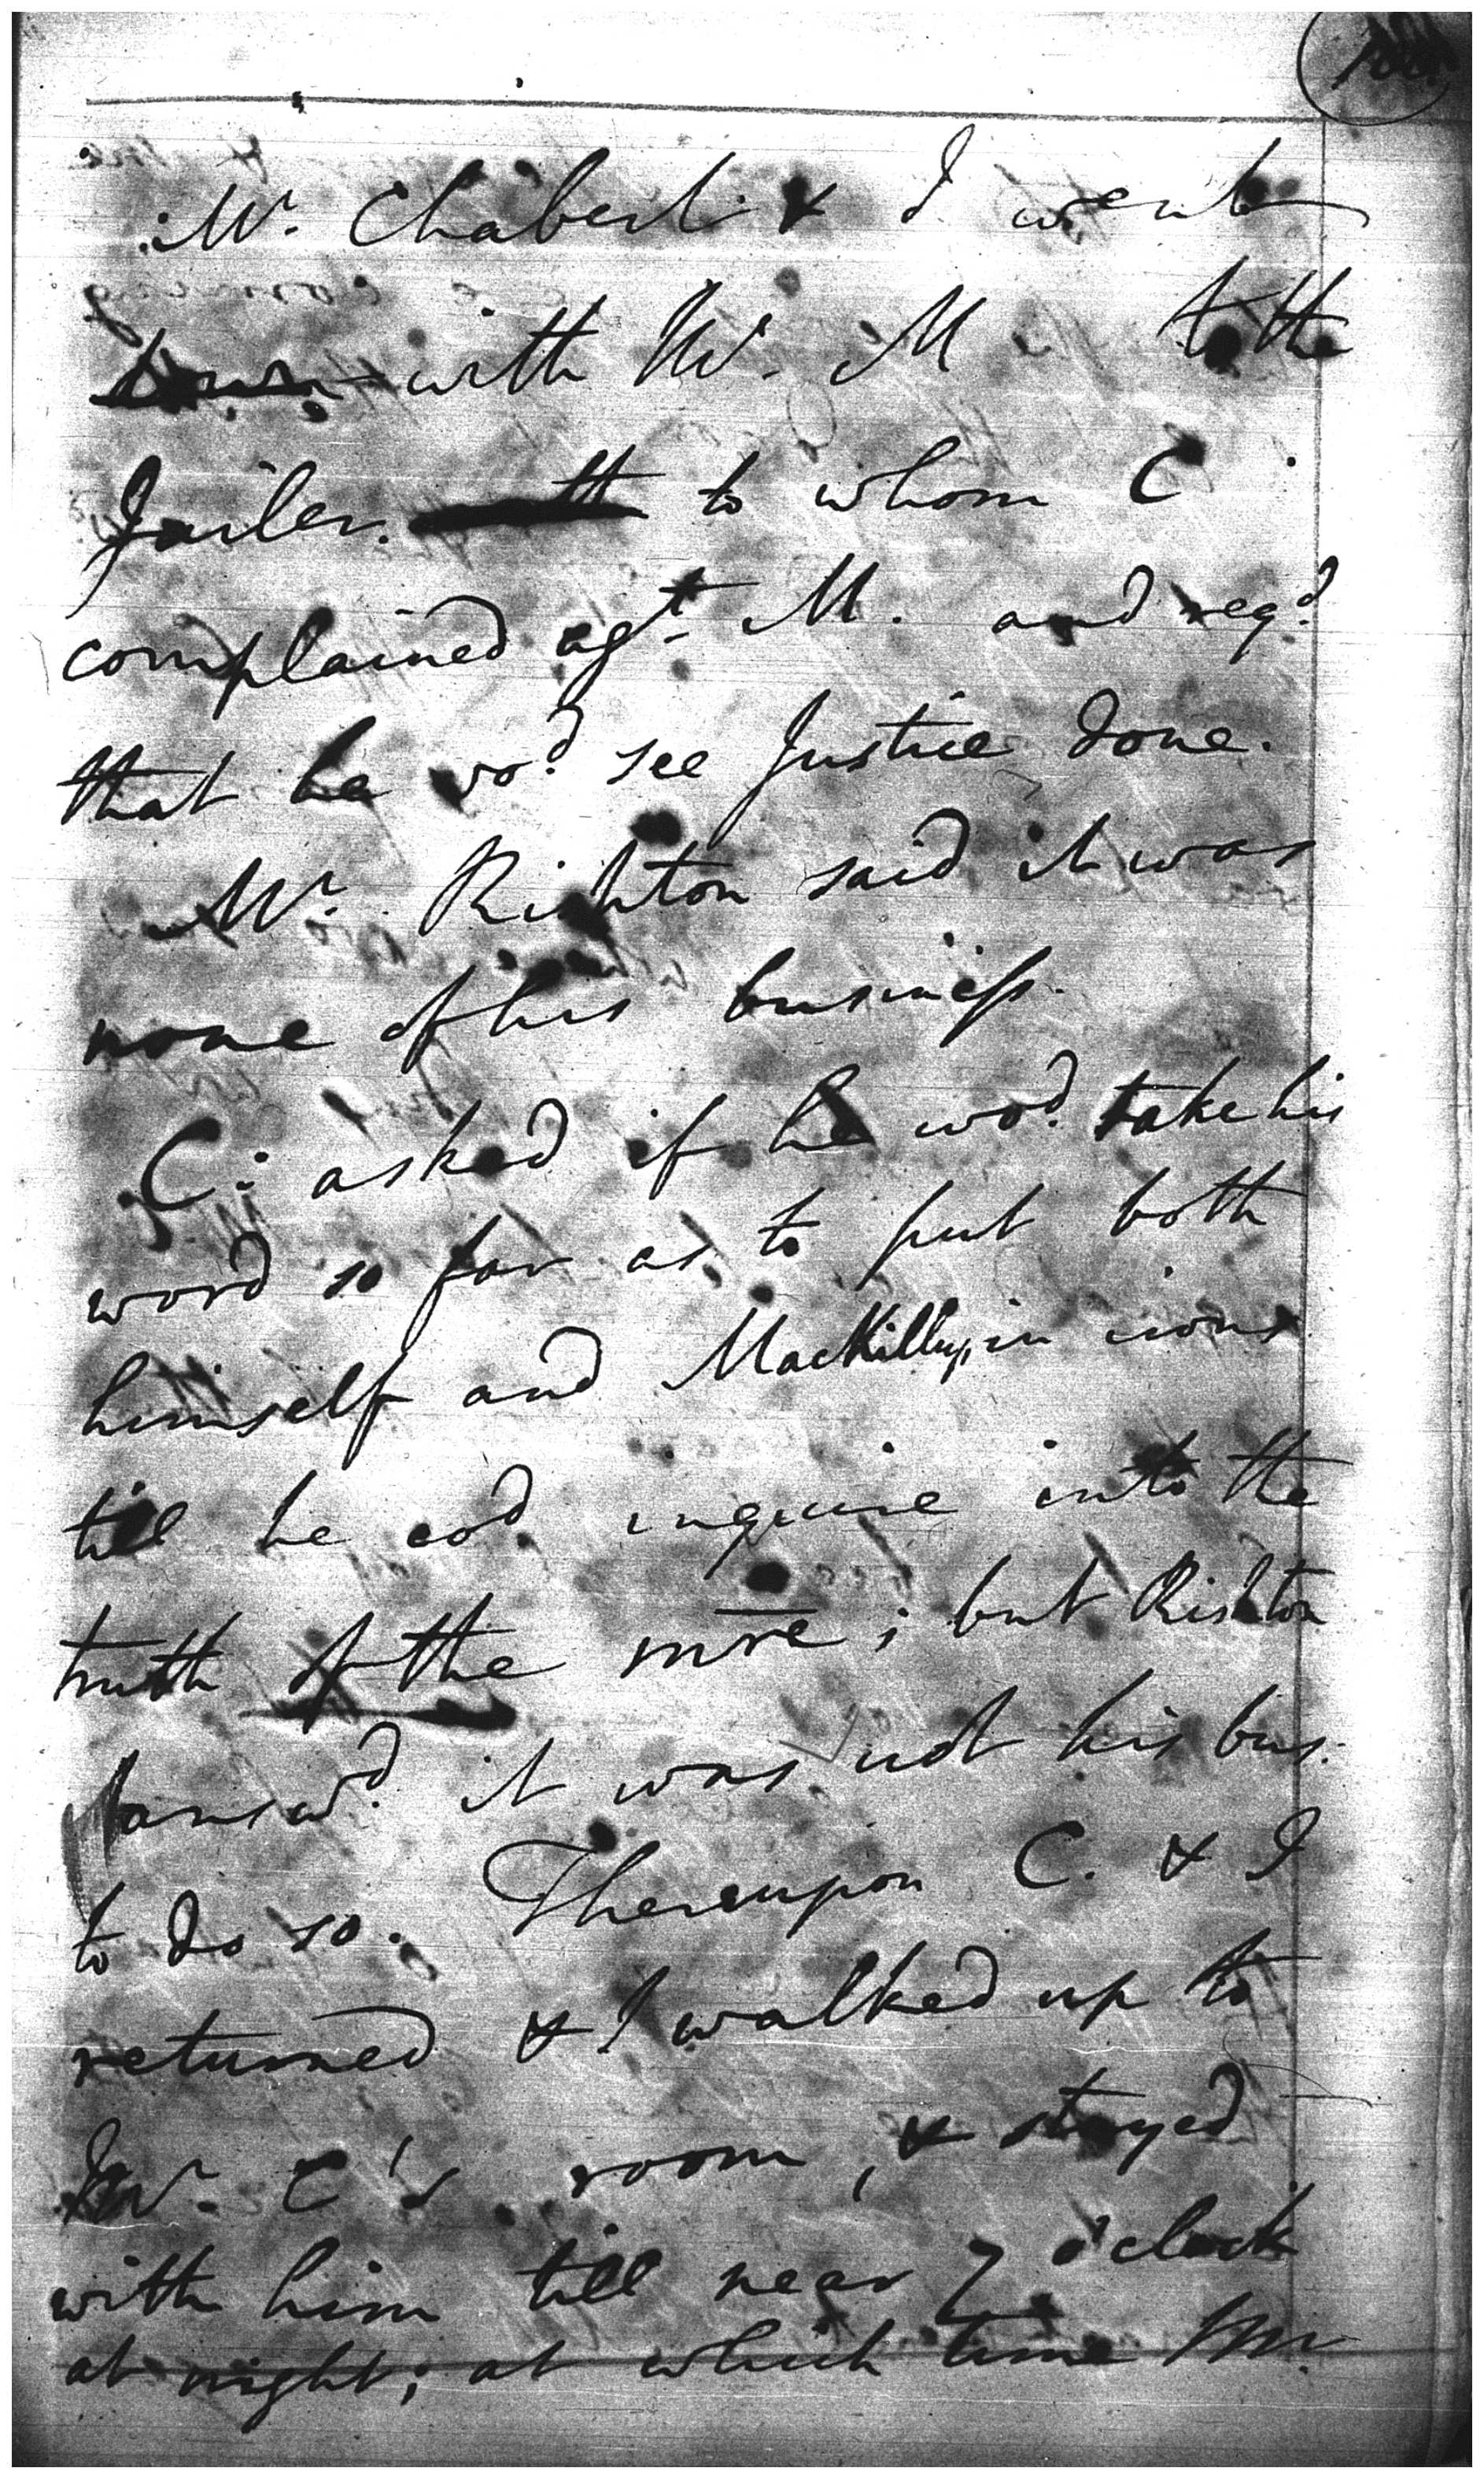 Mr. Chabert & I went
down with Mr. M to the
Jailer. to whom C
complained agt. M. and reqd.
that he wod. see Justice done.
Mr. Rishton said it was
none of his business.
C: asked if he wod. take his
word so far as to put both
himself and MacKilly, in irons
till he cod. inquire into the
truth of the mre; but Rishton
answd. it was not his bus:
to do so. Thereupon C. & I
returned & I walked up to
Mr. C's room, & stayed
with him till near 7 o'clock
at night; at which time Mr.